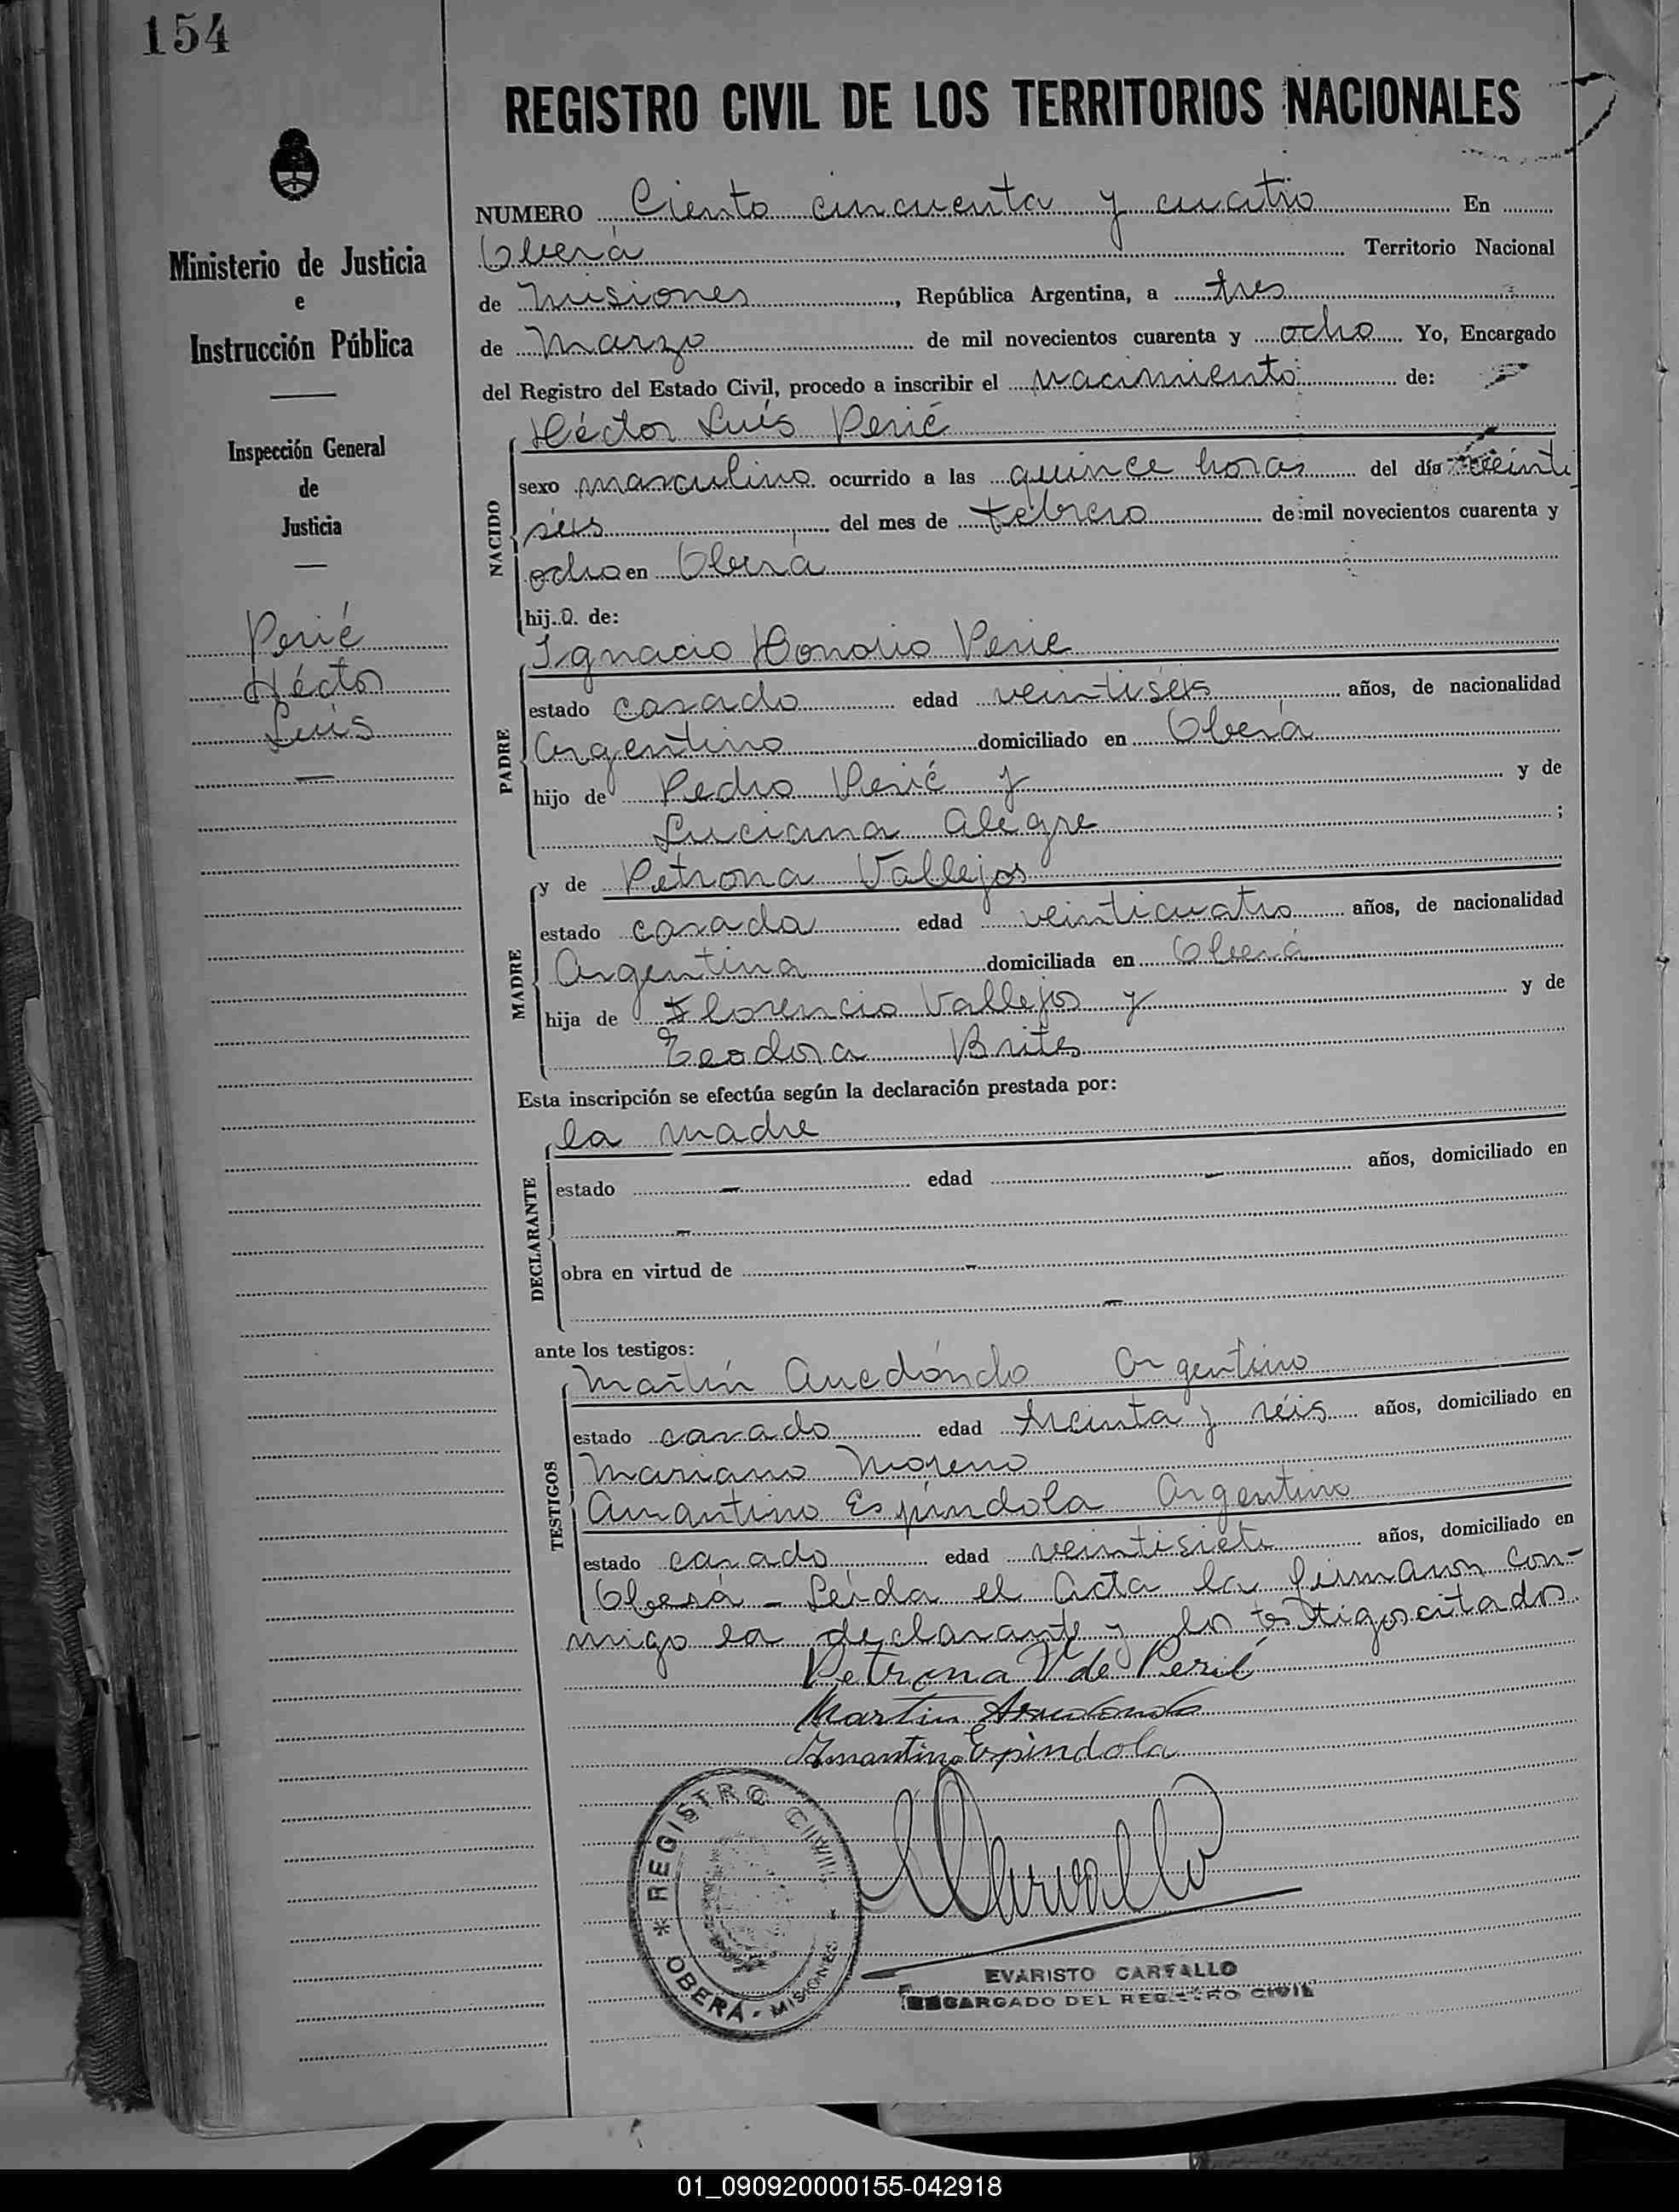 154
REGISTRO CIVIL DE LOS TERRITORIOS NACIONALES
Ministerio de Justicia
e
Instrucción Pública
Inspección General
de
Justicia
Perié
Héctor
Luis
NUMERO Ciento cincuenta y cuatro En
Oberá Territorio Nacional
de Misiones, República Argentina, a tres
de Marzo de mil novecientos cuarenta y ocho Yo, Encargado
del Registro del Estado Civil, procedo a inscribir el nacimiento de:
NACIDO
Héctor Luís Perié
sexo masculino ocurrido a las quince horas del día veinti
séis del mes de febrero de mil novecientos cuarenta y
ocho en Oberá
hijo de:
PADRE
Ignacio Honorio Perie
estado casado edad veintiséis años, de nacionalidad
Argentino domiciliado en Oberá
hijo de Pedro Perié y y de
Luciana Alegre ;
MADRE
y de Petrona Vallejos
estado casada edad veinticuatro años, de nacionalidad
Argentina domiciliada en Oberá
hija de Florencio Vallejos y y de
Teodora Brites
Esta inscripción se efectúa según la declaración prestada por:
DECLARANTE
la madre
estado - edad - años, domiciliado en
-
obra en virtud de -
-
ante los testigos:
TESTIGOS
Martín Arredóndo Argentino
estado casado edad treinta y séis años, domiciliado en
Mariano Moreno
Amantino Espíndola Argentino
estado casado edad veintisiete años, domiciliado en
Oberá - Leída el Acta la firmaron con-
migo la declarante y los testigos citados
Petrona V de Perié
Martin Arredondo
Amantino Espindola
REGISTRO CIVIL
OBERÁ - MISIONES
EVARISTO CARVALLO
ENCARGADO DEL REGISTRO CIVIL
01_090920000155-042918